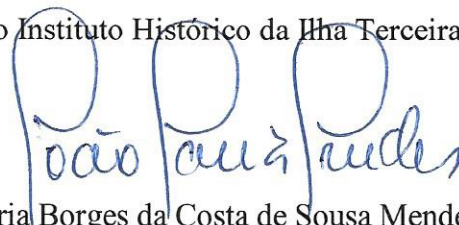 o Instituto Histórico da Ilha Terceira
João Maria Mendes
ria Borges da Costa de Sousa Mende